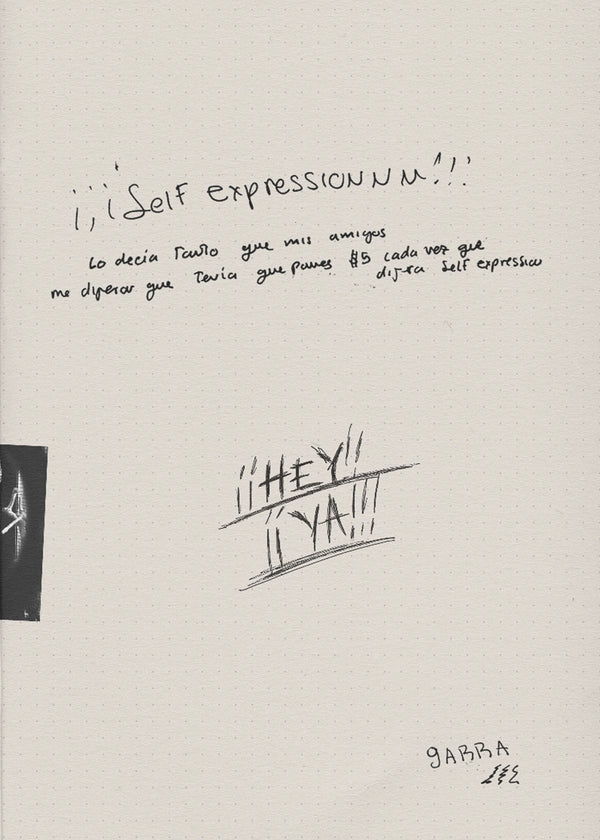 ¡¡¡Self expressionnn!!!
Lo decía tanto que mis amigos
me dijeron que tenía que poner $5 cada vez que
dijera self expression
¡¡HEY!!
¡¡YA!!!
gARRA